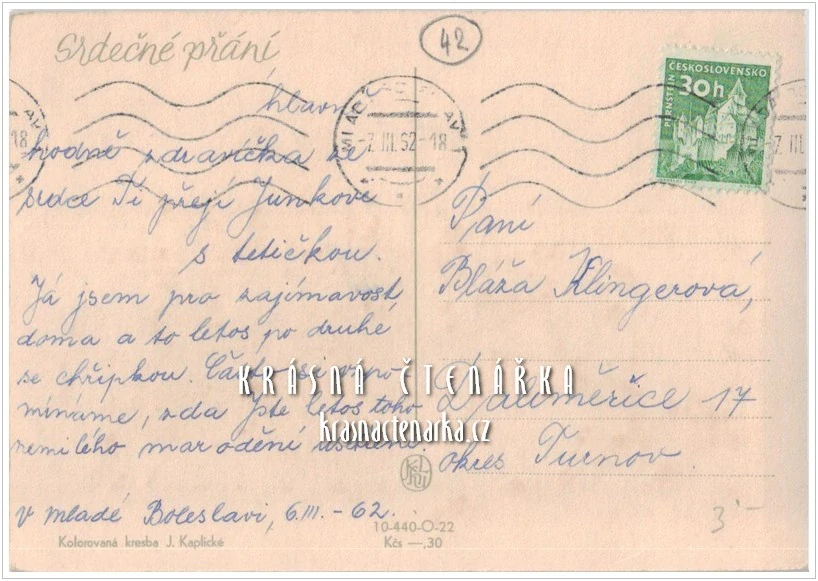 Srdečné přání
42
ČESKOSLOVENSKO
30h
PERNŠTEJN
7. III. 62-18
hlavně
hodně zdravíčka ze
srdce Ti přejí Junkovi
s tetičkou.
Já jsem pro zajímavost,
doma a to letos po druhé
se chřipkou. Často si vzpo
mínáme, zda jste letos toho
nemilého marodění
v Mladé Boleslavi, 6.III.-62.
Paní
Bláža Klingerová,
17
okres Turnov.
KRÁSNÁ ČTENÁŘKA
krasnactenarka.cz
10-440-O-22
Kčs —,30
Kolorovaná kresba J. Kaplické
3'-